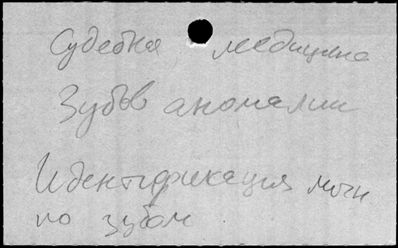 Судебная медицина
Зубов аномалии
Идентификация
по зубам